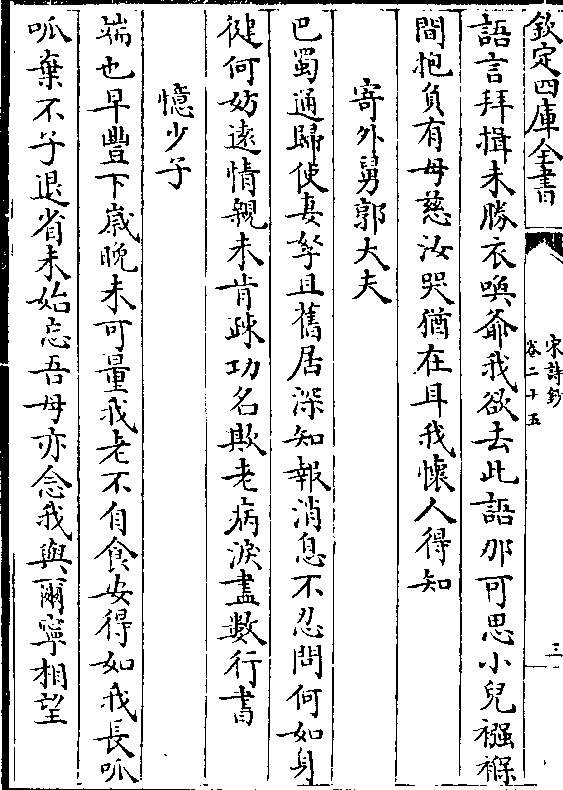 欽定四庫全書
宋詩鈔
卷二十五
三
語言拜揖未勝衣喚爺我欲去此語那可思小兒襁褓
間抱負有母慈汝哭猶在耳我懷人得知
寄外舅郭大夫
巴蜀通歸使妻孥且舊居深知報消息不忍問何如身
徤何妨遠情親未肯疎功名欺老病淚盡數行書
憶少子
端也早豐下嵗晚未可量我老不自食安得如我長呱
呱棄不子退省未始忘吾母亦念我與爾寧相望